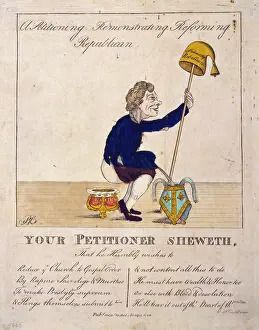 A Petitioning Remonstrating Reforming
Republican
YOUR PETITIONER SHEWETH,
That he Humbly wishes to
Reduce ye Church to Gospel Order
By Rapine Sacrilege & Murther
To make Presbytry supream
& Kings themselves submit to him
& not content all this to do
He must have wealth & Honor too
or else with Blood & desolation
He'll tear it out of the Heart of